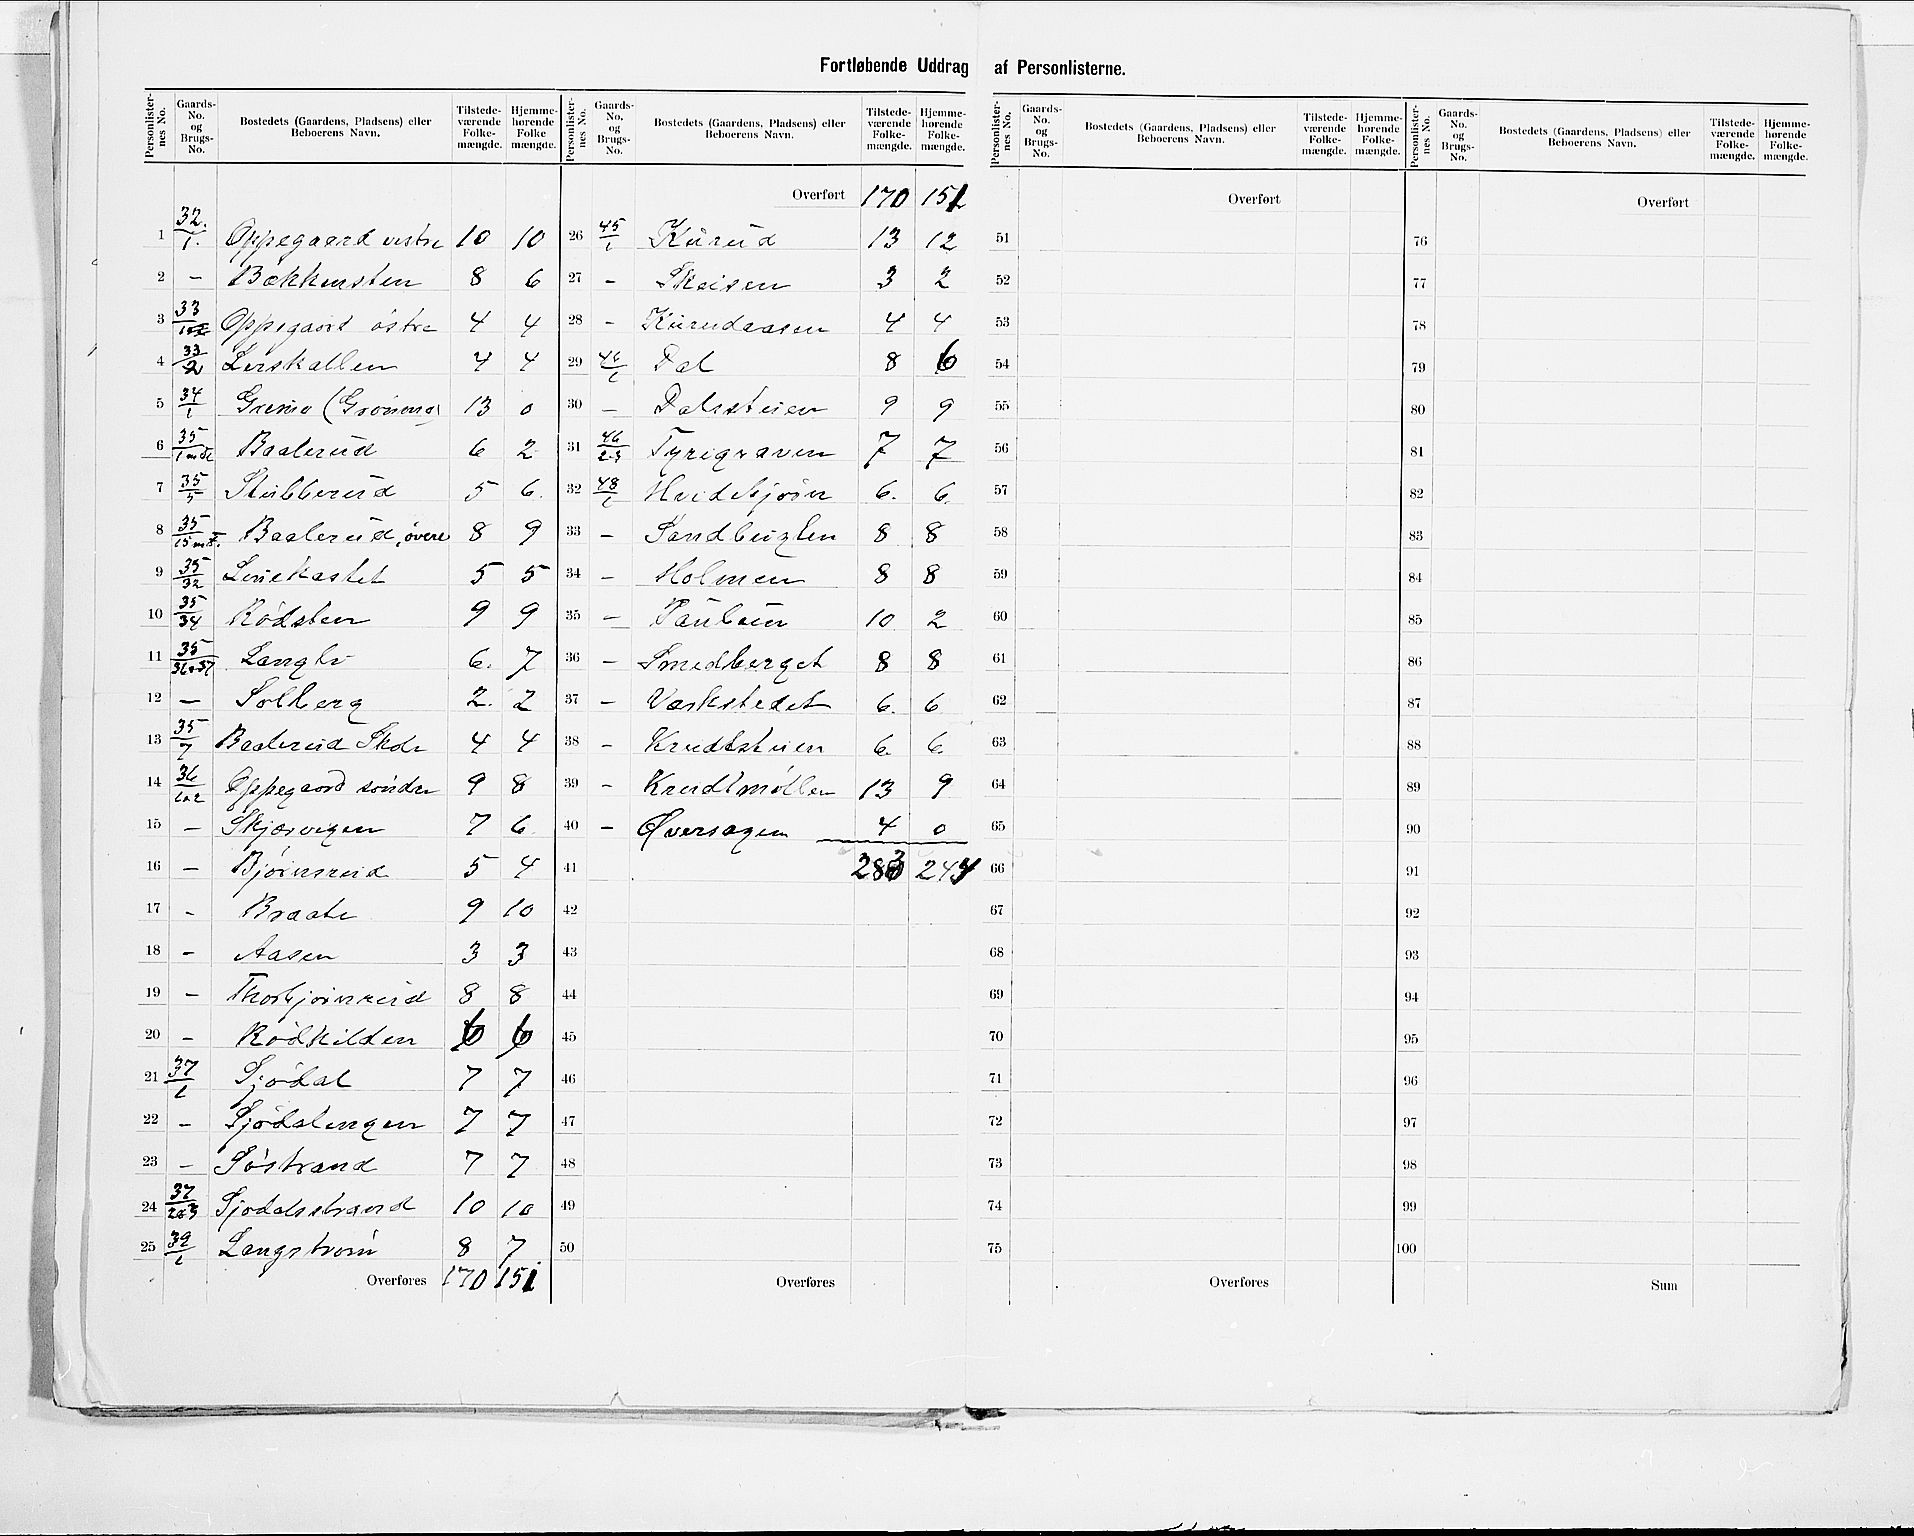 Fortløbende Uddrag af Personlisterne.
Personlisternes No. | Gaards-No. og Brugs-No. | Bostedets (Gaardens, Pladsens) eller Beboerens Navn. | Tilstedeværende Folkemængde. | Hjemmehørende Folkemængde.
1 32./1. Oppegaard vestre 10 10
2 – Bækkensten 8 6
3 33/1 Oppegaard østre 4 4
4 33/2 Lerskallen 4 4
5 34/1 Gremo (Grønmo) 13 0
6 35/1 Baalerud 6 2
7 35/5 Stubberud 5 6.
8 35/15 Baalerud, övere 8 9
9 35/32 Linekastet 5 5
10 35/34 Rødsten 9 9
11 35/36+37 Langli 6. 7
12 – Solberg 2. 2
13 35/7 Baalerud Skole 4 4
14 36/1o2 Oppegaard søndre 9 8
15 – Skjærvigen 7 6.
16 – Bjørnsrud 5 4
17 - Braate 9 10
18 – Aasen 3 3
19 – Thorbjørnsrud 8 8
20 – Rødkilden 6 6
21 37/1 Sjødal 7 7
22 – Sjødalengen 7 7
23 – Søstrand 7 7
24 37/2o3 Sjødalsstrand 10 10
25 39/1 Langstrøm 8 7
Overføres 170 151
Personlisternes No. | Gaards-No. og Brugs-No. | Bostedets (Gaardens, Pladsens) eller Beboerens Navn. | Tilstedeværende Folkemængde. | Hjemmehørende Folkemængde.
Overført 170 151
26 45/1 Kurud 13 12
27 – Skeisen 3 2
28 – Kurudaasen 4 4
29 46/1 Dal 8 6
30 – Dalsstuen 9 9
31 46/2.3 Tyrigraven 7 7
32 48/1 Hvidebjørn 6. 6.
33 – Sandbugten 8 8
34 – Holmen 8 8
35 – Taubeun 10 2
36 – Smedberget 8 8
37 – Værkstedet 6. 6
38 – Krudtstuen 6. 6.
39 - Krudtmøllen 13 9
40 – Øversagen 4 0
41 283 244
42
43
44
45
46
47
48
49
50
Overføres
Personlisternes No. | Gaards-No. og Brugs-No. | Bostedets (Gaardens, Pladsens) eller Beboerens Navn. | Tilstedeværende Folkemængde. | Hjemmehørende Folkemængde.
Overført
51
52
53
54
55
56
57
58
59
60
61
62
63
64
65
66
67
68
69
70
71
72
73
74
75
Overføres
Personlisternes No. | Gaards-No. og Brugs-No. | Bostedets (Gaardens, Pladsens) eller Beboerens Navn. | Tilstedeværende Folkemængde. | Hjemmehørende Folkemængde.
Overført
76
77
78
79
80
81
82
83
84
85
86
87
88
89
90
91
92
93
94
95
96
97
98
99
100
Sum